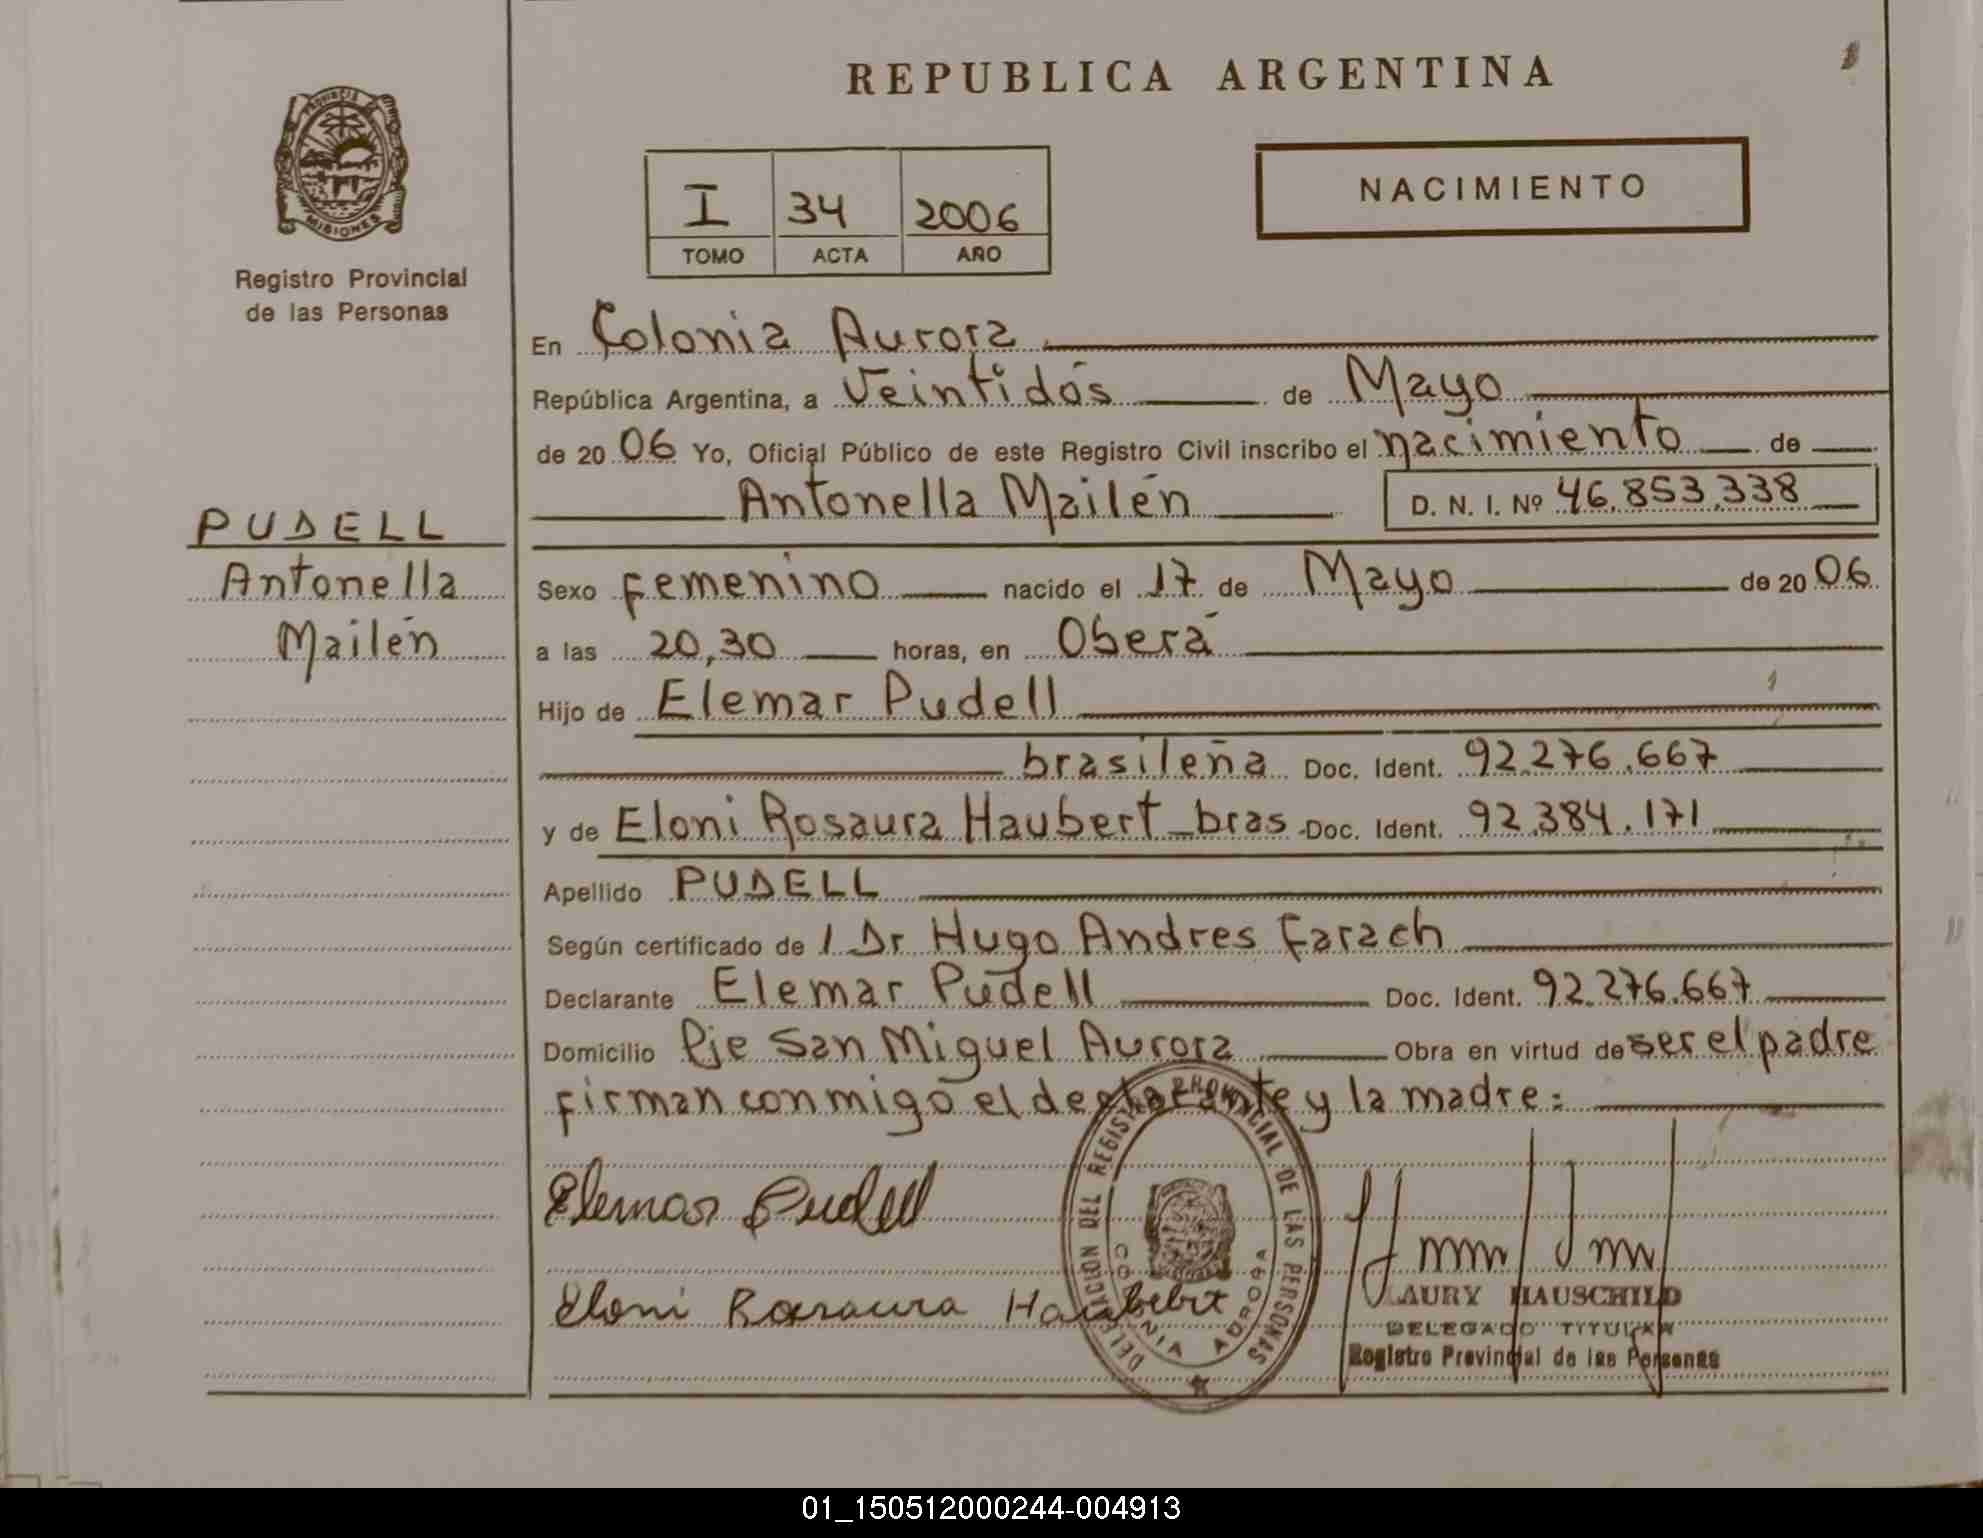 REPUBLICA ARGENTINA
PROVINCIA
MISIONES
Registro Provincial
de las Personas
I 34 2006
TOMO ACTA AÑO
NACIMIENTO
En Colonia Aurora
República Argentina, a Veintidós de Mayo
de 2006 Yo, Oficial Público de este Registro Civil inscribo el nacimiento de
Antonella Mailén D. N. I. Nº 46.853.338
PUDELL
Antonella
Mailén
Sexo femenino nacido el 17 de Mayo de 2006
a las 20,30 horas, en Oberá
Hijo de Elemar Pudell
brasileña Doc. Ident. 92.276.667
y de Eloni Rosaura Haubert - bras - Doc. Ident. 92.384.171
Apellido PUDELL
Según certificado de / Dr Hugo Andres Farach
Declarante Elemar Pudell Doc. Ident. 92.276.667
Domicilio Pje San Miguel Aurora Obra en virtud de ser el padre
firman conmigo el declarante y la madre:
Elemar Pudell
Eloni Rosaura Haubert
DELEGACION DEL REGISTRO PROVINCIAL DE LAS PERSONAS
COLONIA AURORA
LAURY HAUSCHILD
DELEGADO TITULAR
Registro Provincial de las Personas
01_150512000244-004913